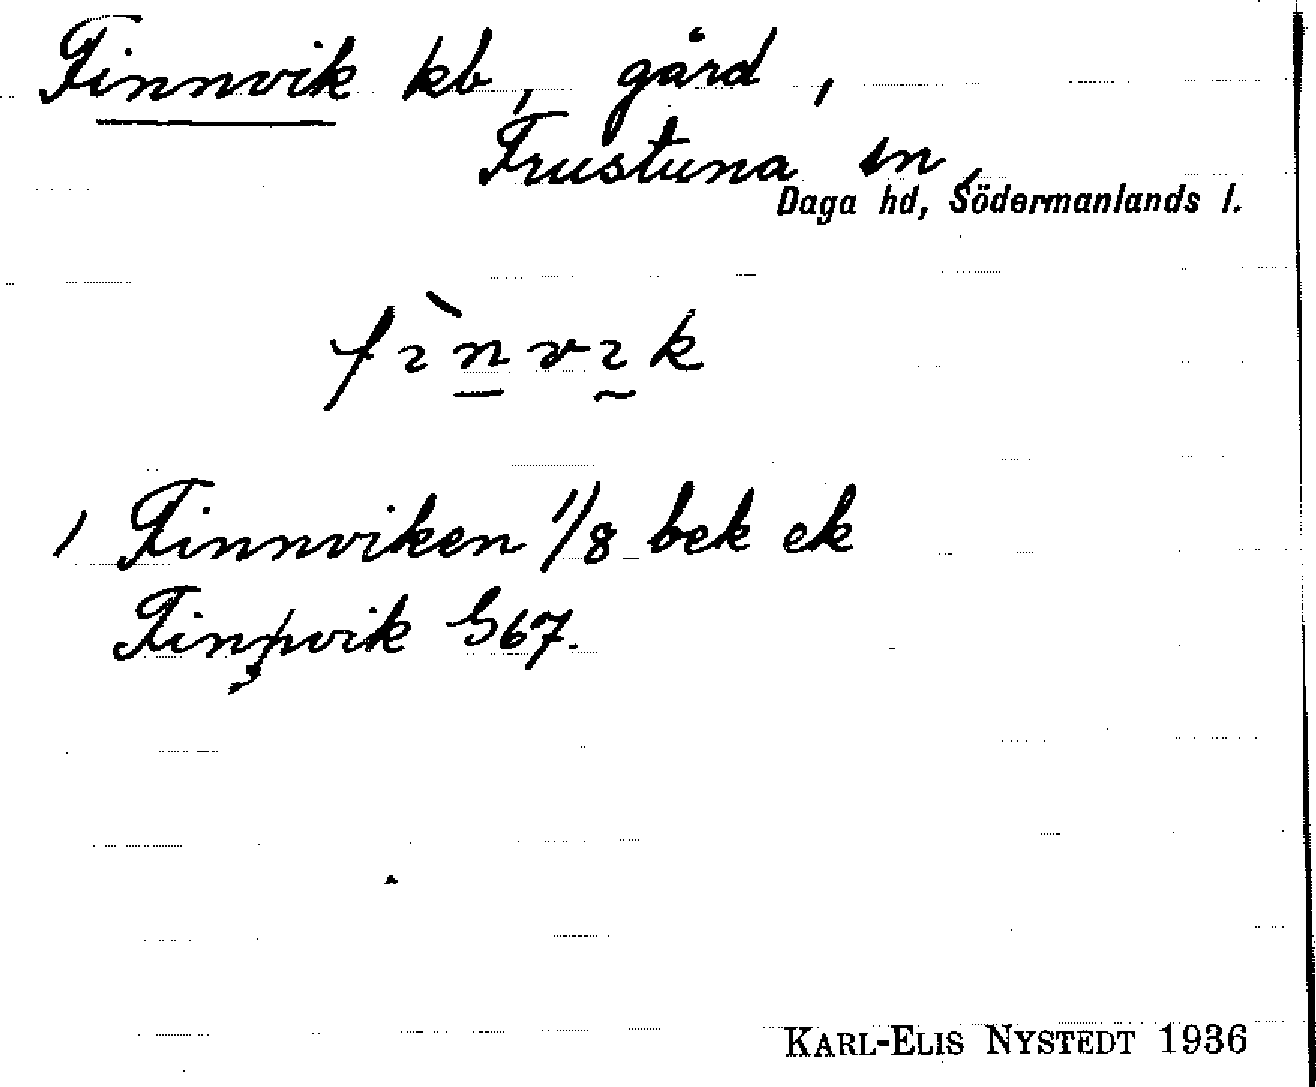 Finnvik kb, gård,
Frustuna sn,
Daga hd, Södermanlands l.
fìn̲vɪ̰k
1 Finnviken 1/8 bek ek
Finnvik G67.
KARL-ELIS NYSTEDT 1936